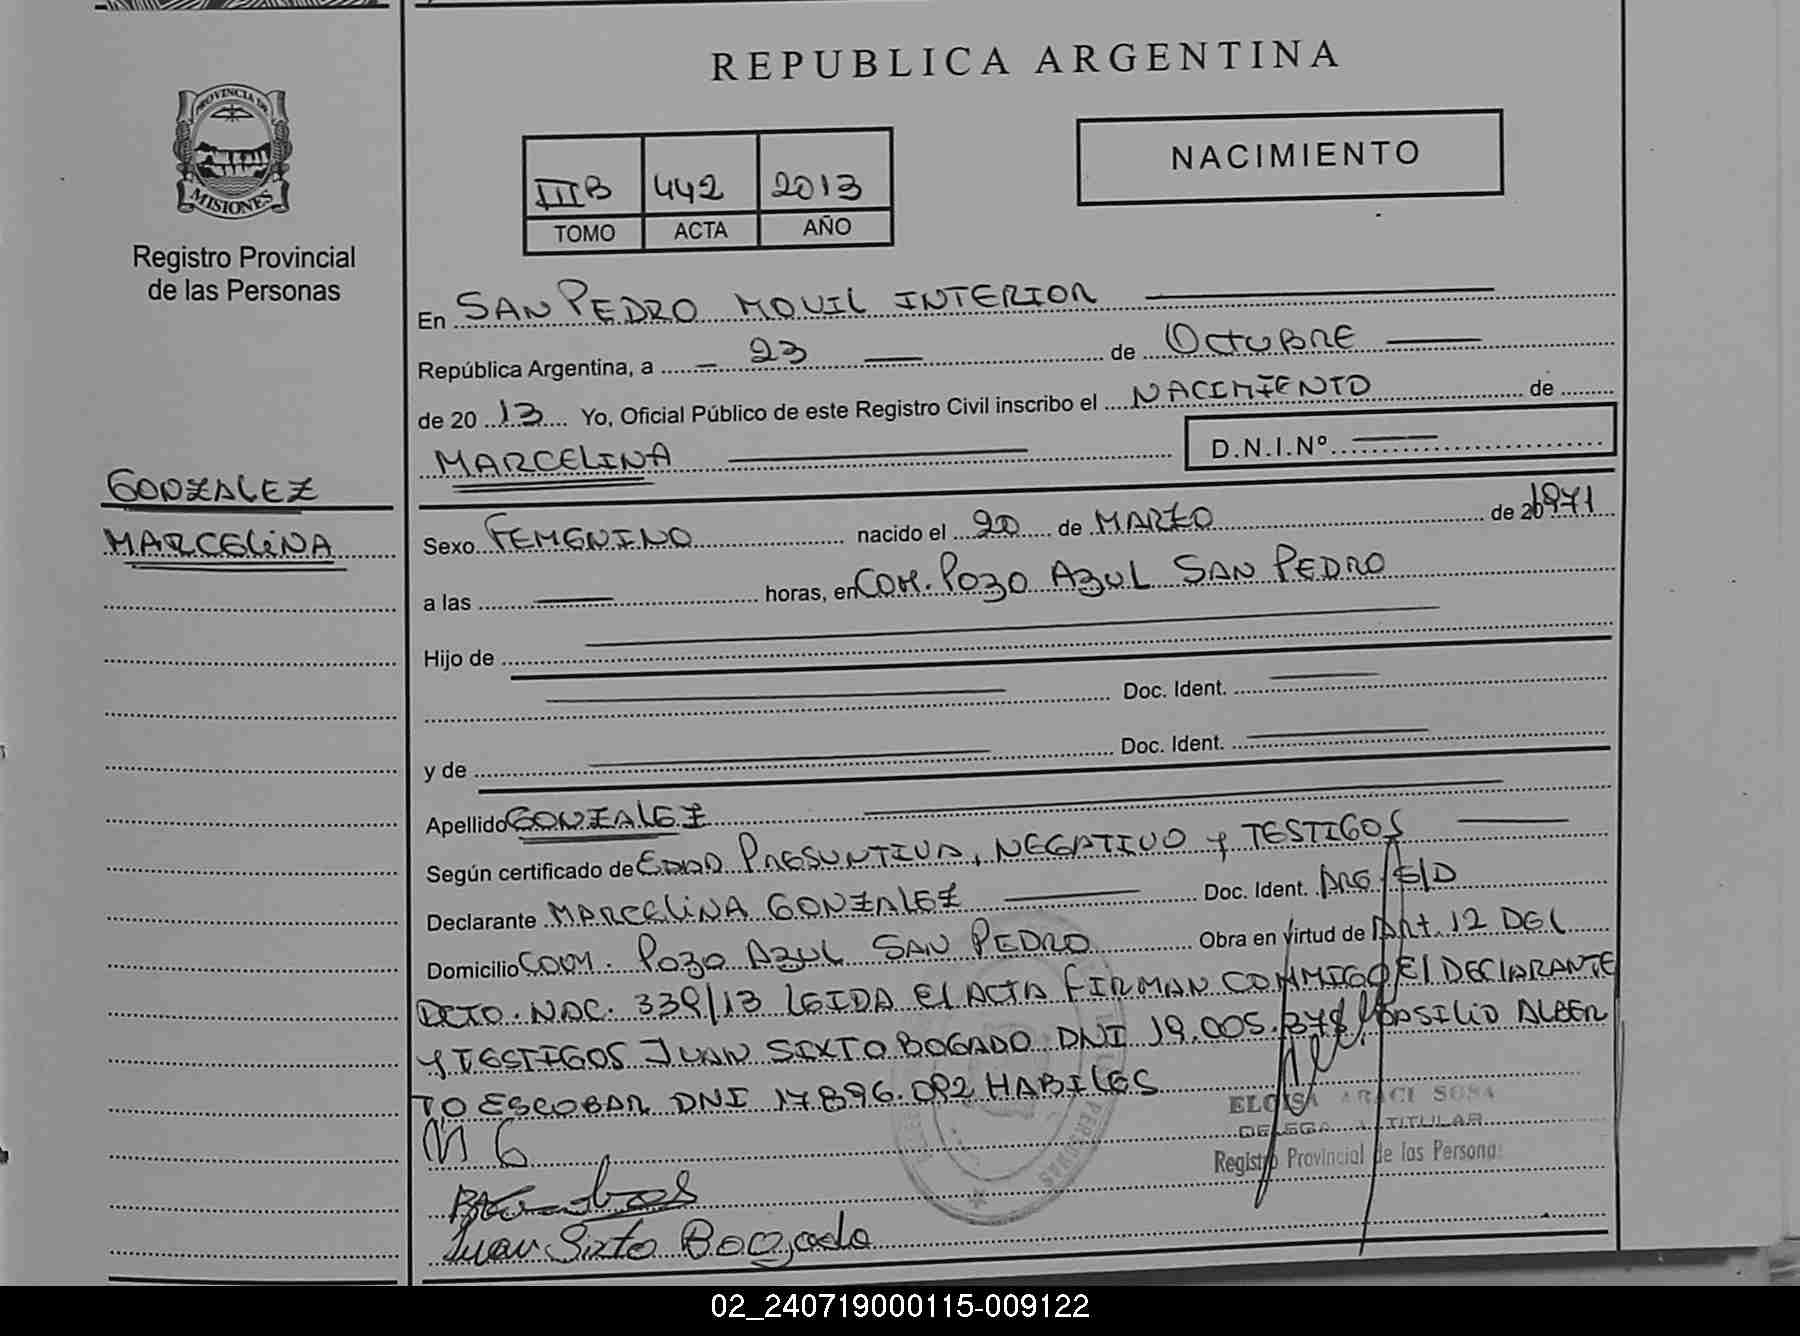 REPUBLICA ARGENTINA
PROVINCIA DE
MISIONES
Registro Provincial
de las Personas
NACIMIENTO
III B 442 2013
TOMO ACTA AÑO
En SAN PEDRO MOVIL INTERIOR
República Argentina, a 23 de OCTUBRE
de 20 13 Yo, Oficial Público de este Registro Civil inscribo el NACIMIENTO de
MARCELINA D.N.I.Nº
GONZALEZ
MARCELINA
Sexo FEMENINO nacido el 20 de MARZO de 20 1971
a las horas, en COM. POZO AZUL SAN PEDRO
Hijo de
Doc. Ident.
y de Doc. Ident.
Apellido GONZALEZ
Según certificado de EDAD PRESUNTIVA, NEGATIVO y TESTIGOS
Declarante MARCELINA GONZALEZ Doc. Ident. ARG S/D
Domicilio COM. POZO AZUL SAN PEDRO Obra en virtud de Art. 12 DEL
DCTO. NAC. 339/13 LEIDA El ACTA FIRMAN CONMIGO El DECLARANTE
y TESTIGOS JUAN SIXTO BOGADO DNI 19.005.378 y BASILIO ALBER
TO ESCOBAR DNI 17.896.092 HABILES
M G
ELOISA ARACI SOSA
DELEGADA TITULAR
Registro Provincial de las Personas
Juan Sixto Bogado
02_240719000115-009122